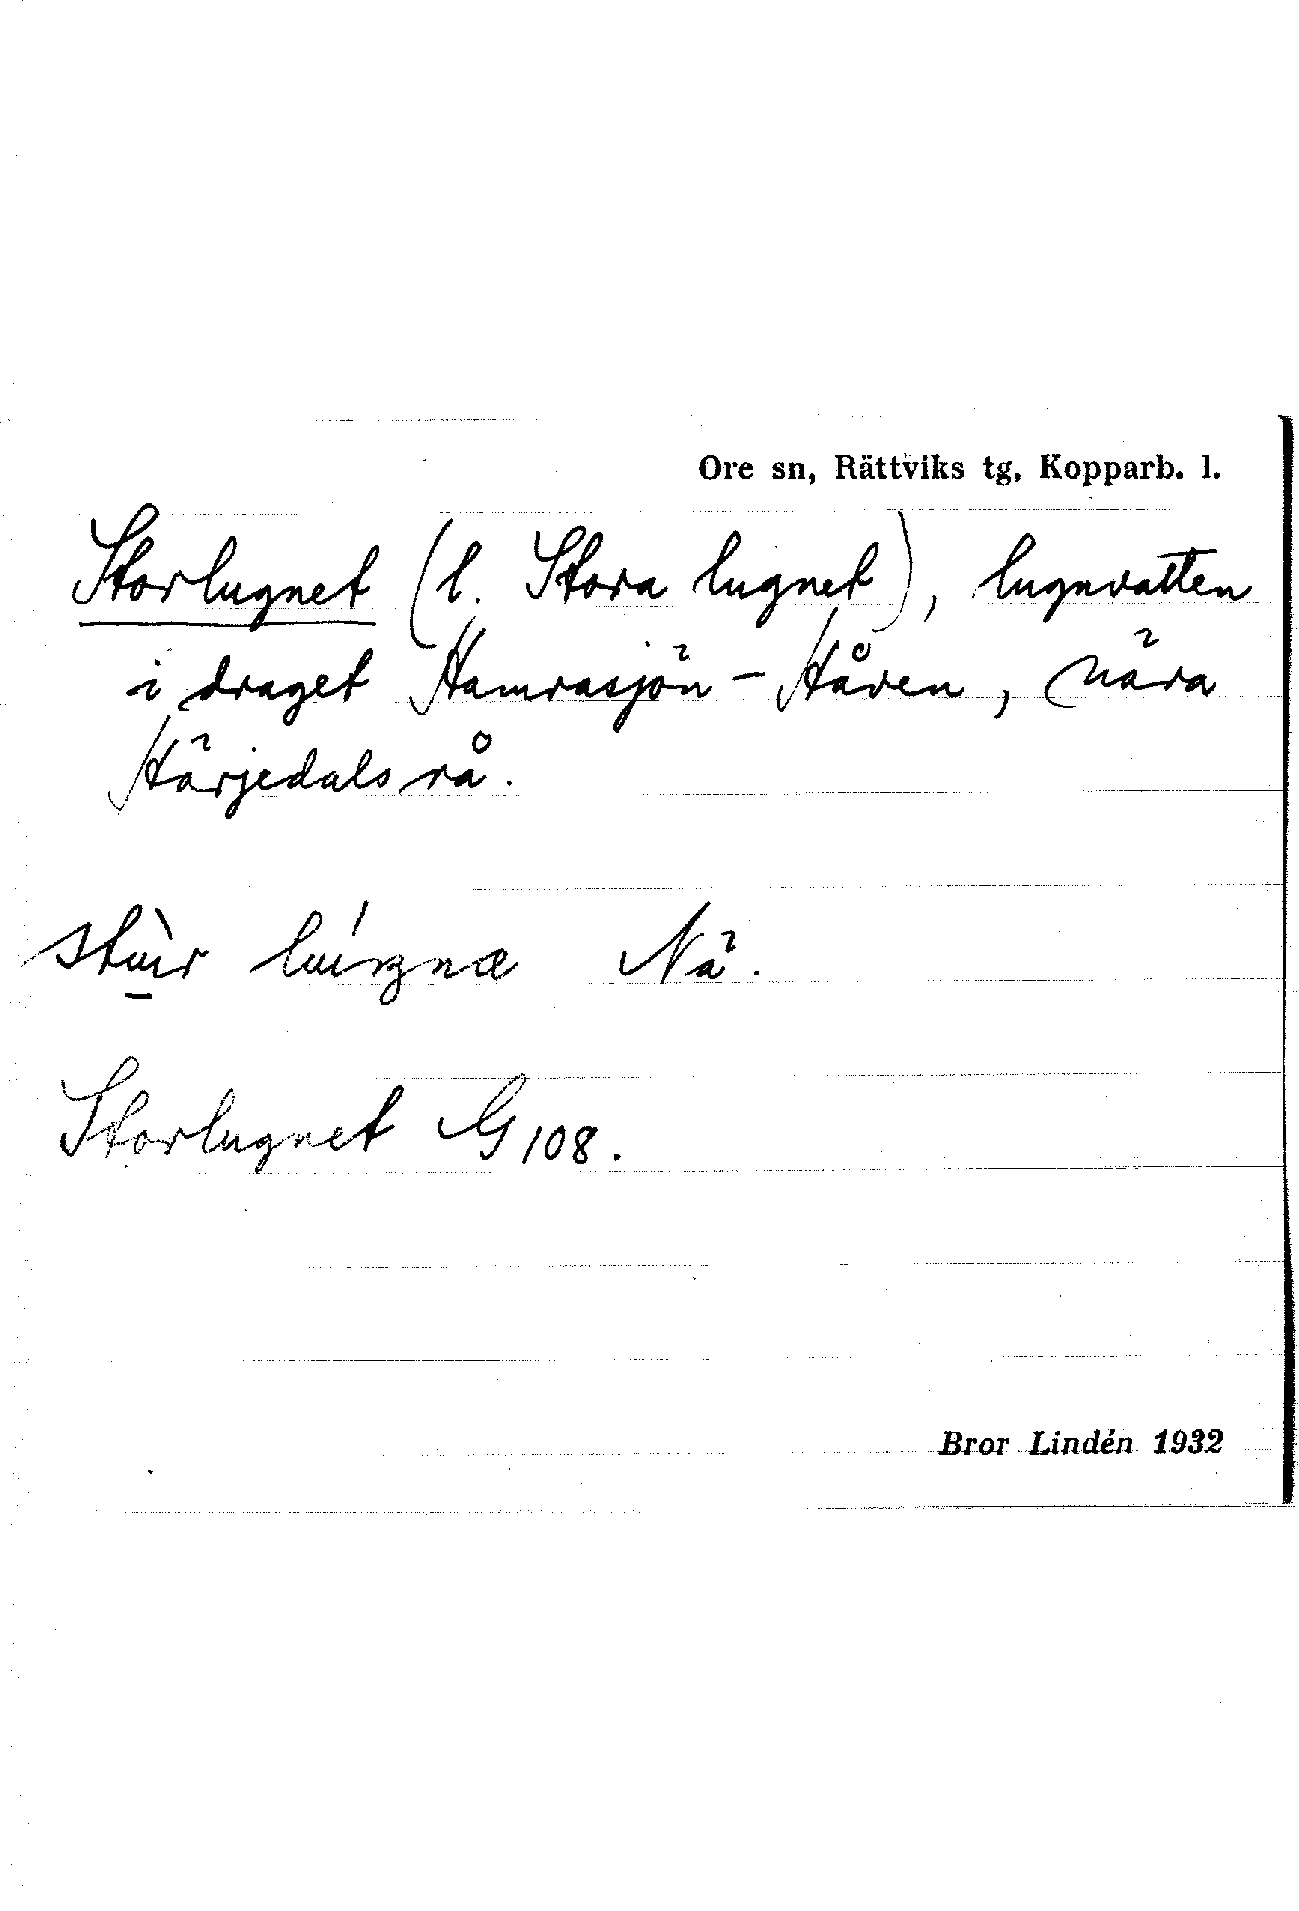 Ore sn, Rättviks tg, Kopparb. l.
Storlugnet (l. Stora lugnet), lugnvatten
i draget Hamrasjön – Håven, nära
Härjedalsrå.
Nä.
Storlugnet G 108.
Bror Lindén 1932